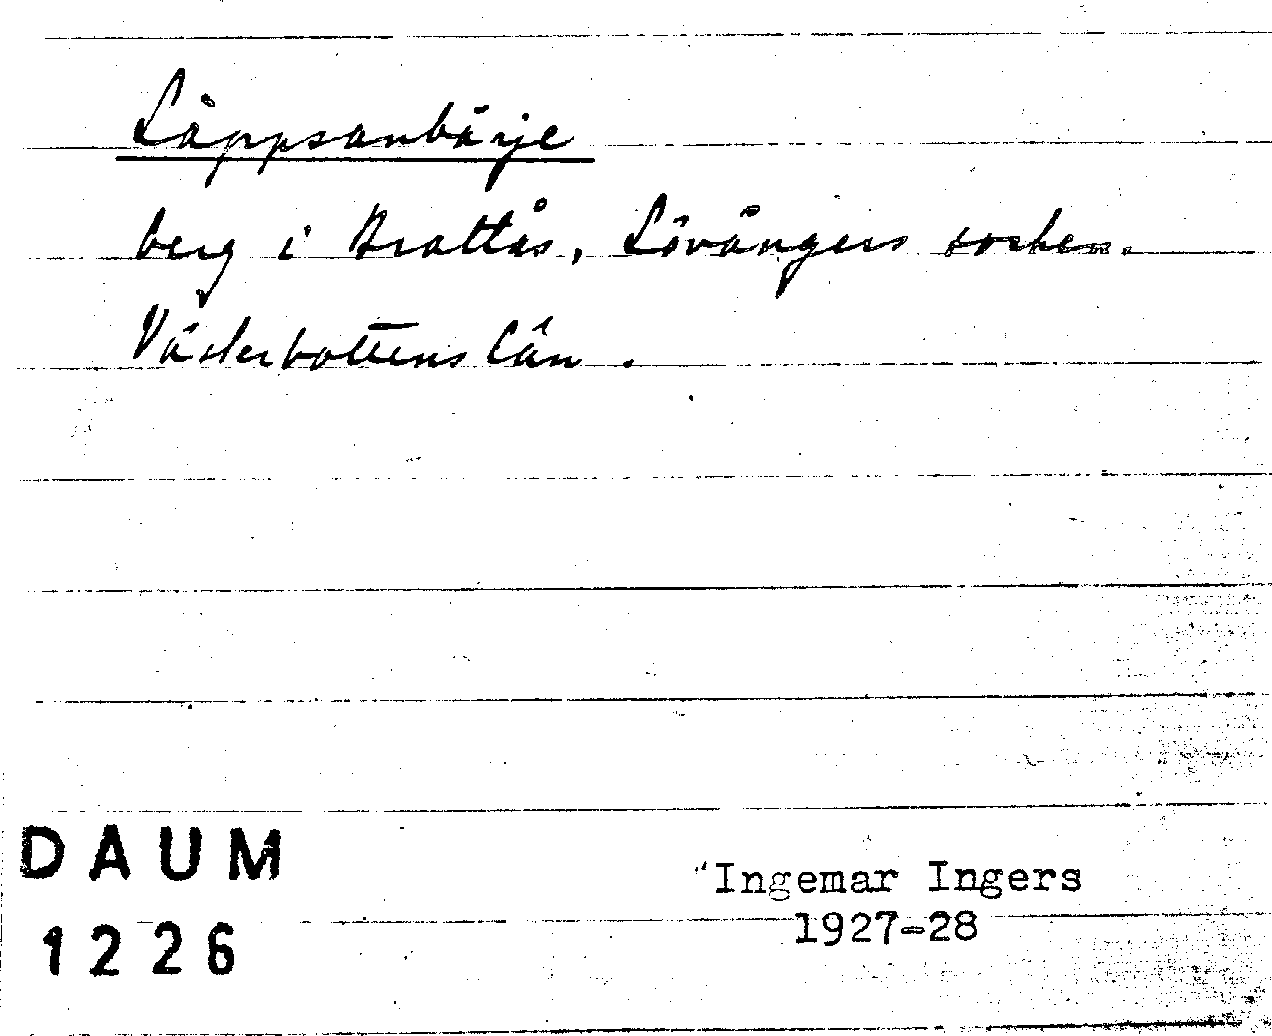 Låppsanbärje
berg i Brattås, Lövångers socken.
Västerbottens län.
DAUM
1226
Ingemar Ingers
1927-28